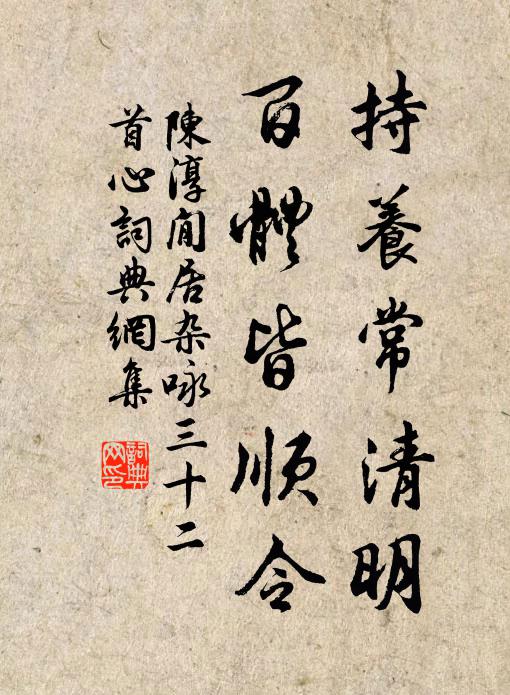 持養常清明
百體皆順令
陳淳閒居杂咏三十二
首心詞典網集
詞典网印